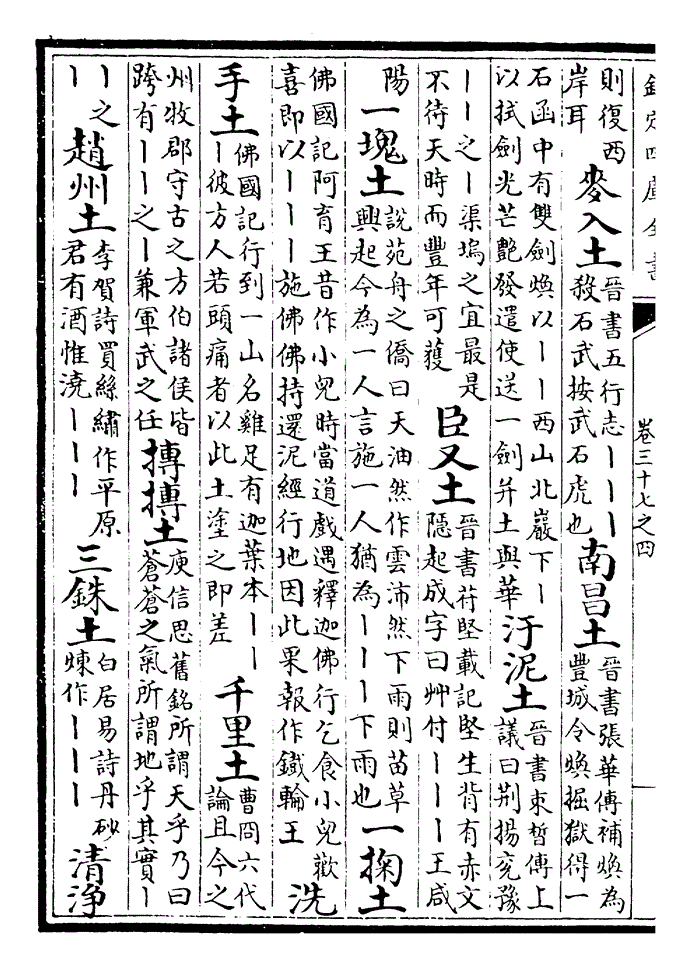 欽定四庫全書
卷三十七之四
則復西
岸耳
麥入土
晉書五行志｜｜｜
殺石武按武石虎也
南昌土
晉書張華傳補煥為
豐城令煥掘獄得一
石函中有雙劍煥以｜｜西山北巖下｜
以拭劍光芒艷發遣使送一劍并土與華
汙泥土
晉書束皙傳上
議曰荆揚兖豫
｜｜之｜渠塢之宜最是
不待天時而豐年可獲
臣又土
晉書苻堅載記堅生背有赤文
隱起成字曰艸付｜｜｜王咸
陽
一塊土
說苑舟之僑曰天油然作雲沛然下雨則苗草
興起今為一人言施一人猶為｜｜｜下雨也
一掬土
佛國記阿育王昔作小兒時當道戲遇釋迦佛行乞食小兒歡
喜即以｜｜｜施佛佛持還泥經行地因此果報作鐵輪王
洗
手土
佛國記行到一山名雞足有迦葉本｜｜
｜彼方人若頭痛者以此土塗之即差
千里土
曹冏六代
論且今之
州牧郡守古之方伯諸侯皆
跨有｜｜之｜兼軍武之任
摶摶土
庾信思舊銘所謂天乎乃曰
蒼蒼之氣所謂地乎其實｜
｜｜之
｜
趙州土
李賀詩買絲繡作平原
君有酒惟澆｜｜｜
三銖土
白居易詩丹砂
煉作｜｜｜
清浄